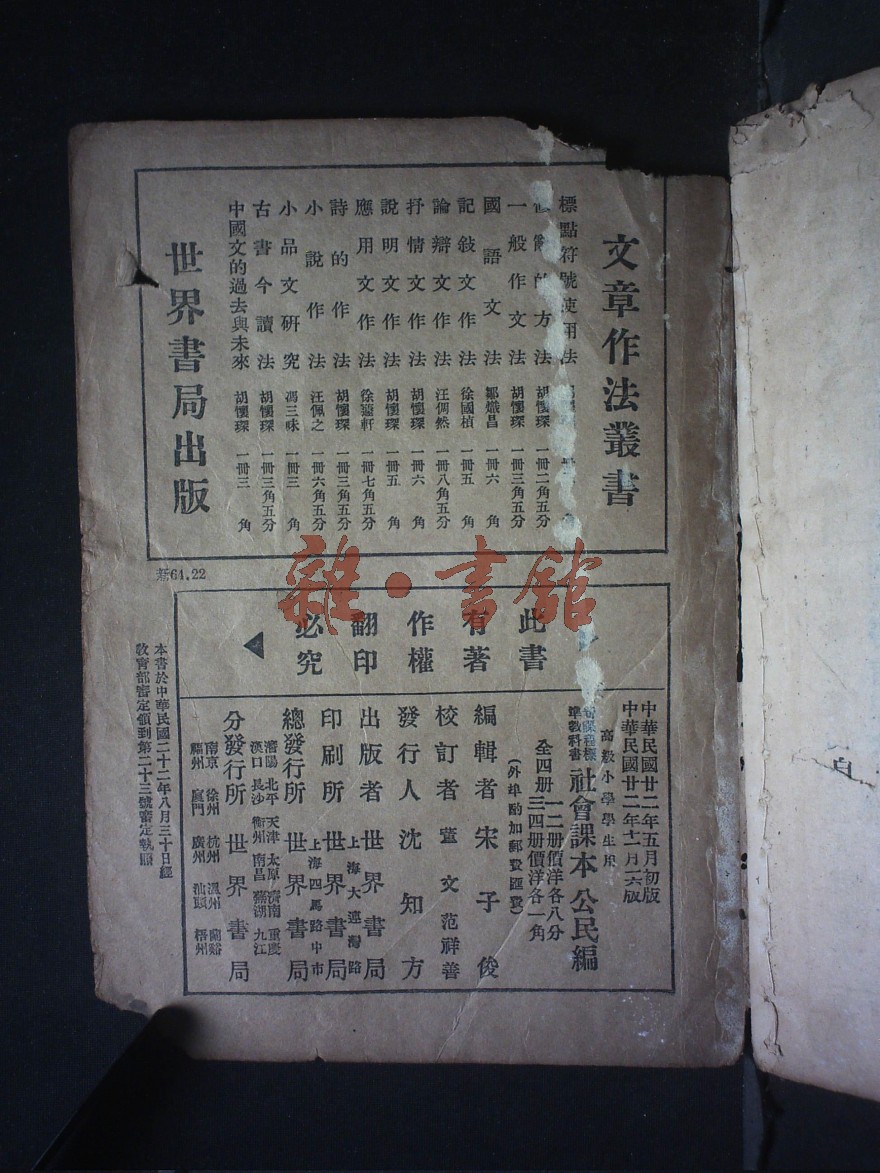 文章作法叢書
標點符號使用法
的方法 胡懷琛 一冊二角五分
一般作文法 胡懷琛 一冊三角五分
國語文法 鄒熾昌 一冊六角
記敍文作法 徐國楨 一冊五角
論辯文作法 汪倜然 一冊八角五分
抒情文作法 胡懷琛 一冊六角
說明文作法 胡懷琛 一冊五角
應用文作法 徐蘧軒 一冊七角五分
詩的作法 胡懷琛 一冊三角五分
小說作法 汪佩之 一冊六角五分
小品文研究 馮三昧 一冊三角
古書今讀法 胡懷琛 一冊三角五分
中國文的過去與未來 胡懷琛 一冊三角
世界書局出版
64.22
此書
有著
作權
翻印
必究
中華民國廿二年五月初版
中華民國廿二年十一月六版
高級小學學生用
新課程標
準教科書
社會課本公民編
全四册
一二册價洋各八分
三四册價洋各一角
(外埠酌加郵費匯費)
編輯者 宋子俊
校訂者 董文 范祥善
發行人 沈知方
出版者 世界書局
上海大連灣路
印刷所 世界書局
上海四馬路中市
總發行所 世界書局
瀋陽 北平 天津 太原 濟南 重慶
漢口 長沙 衡州 南昌 蕪湖 九江
分發行所 世界書局
南京 徐州 杭州 溫州 蘭谿
福州 廈門 廣州 汕頭 梧州
本書於中華民國二十二年八月三十日經
敎育部審定領到第二十三號審定執照
雜·書館